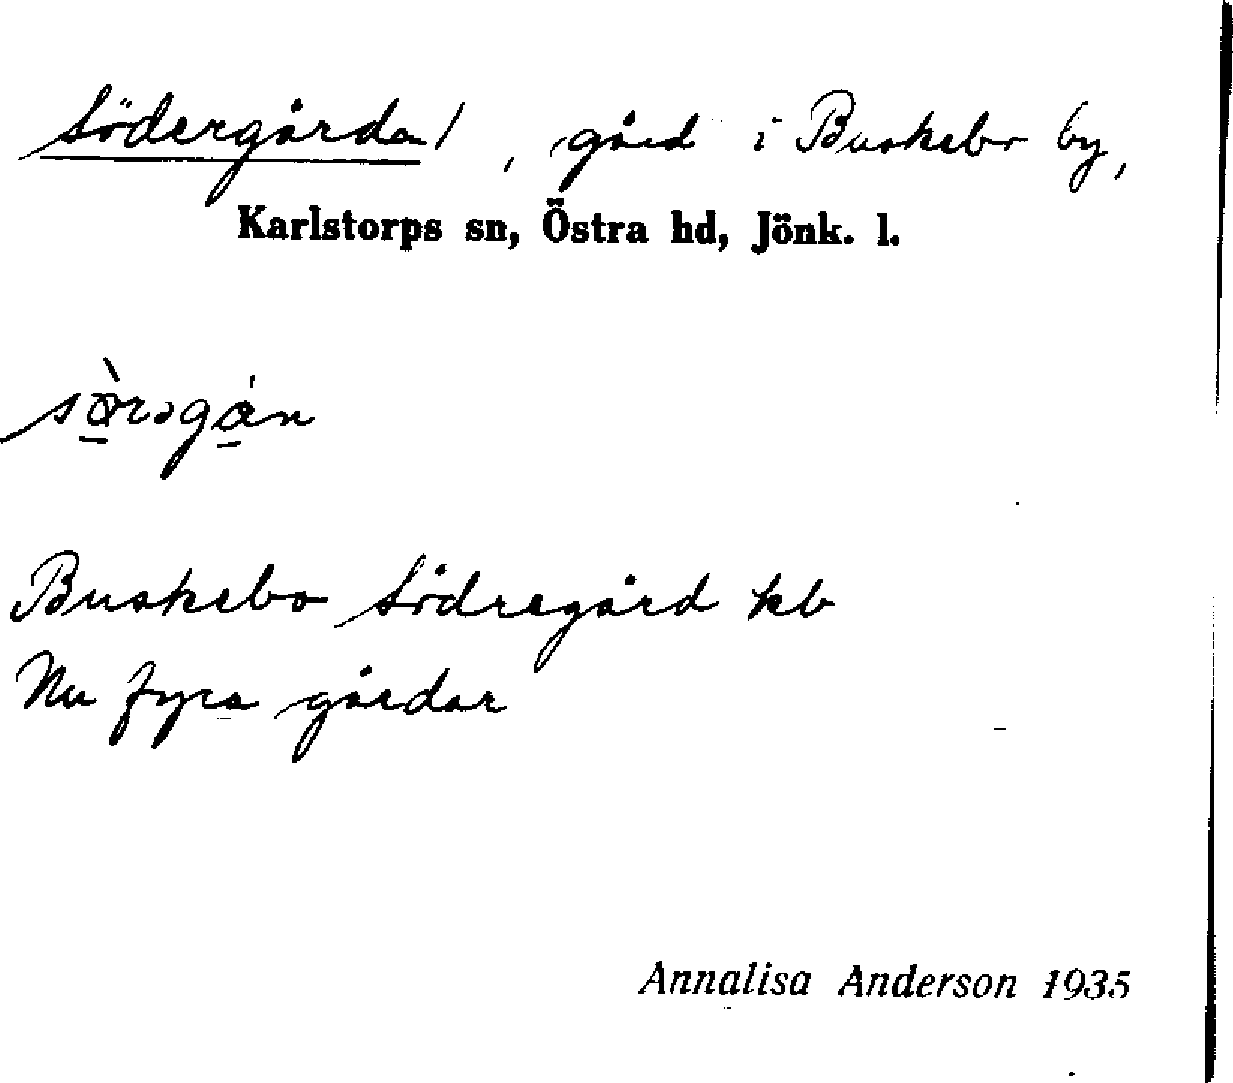 Södergårda/, gård i Buskebo by,
Karlstorps sn, Östra hd, Jönk. l.
Buskebo Södregård kb
Nu fyra gårdar
Annalisa Anderson 1935